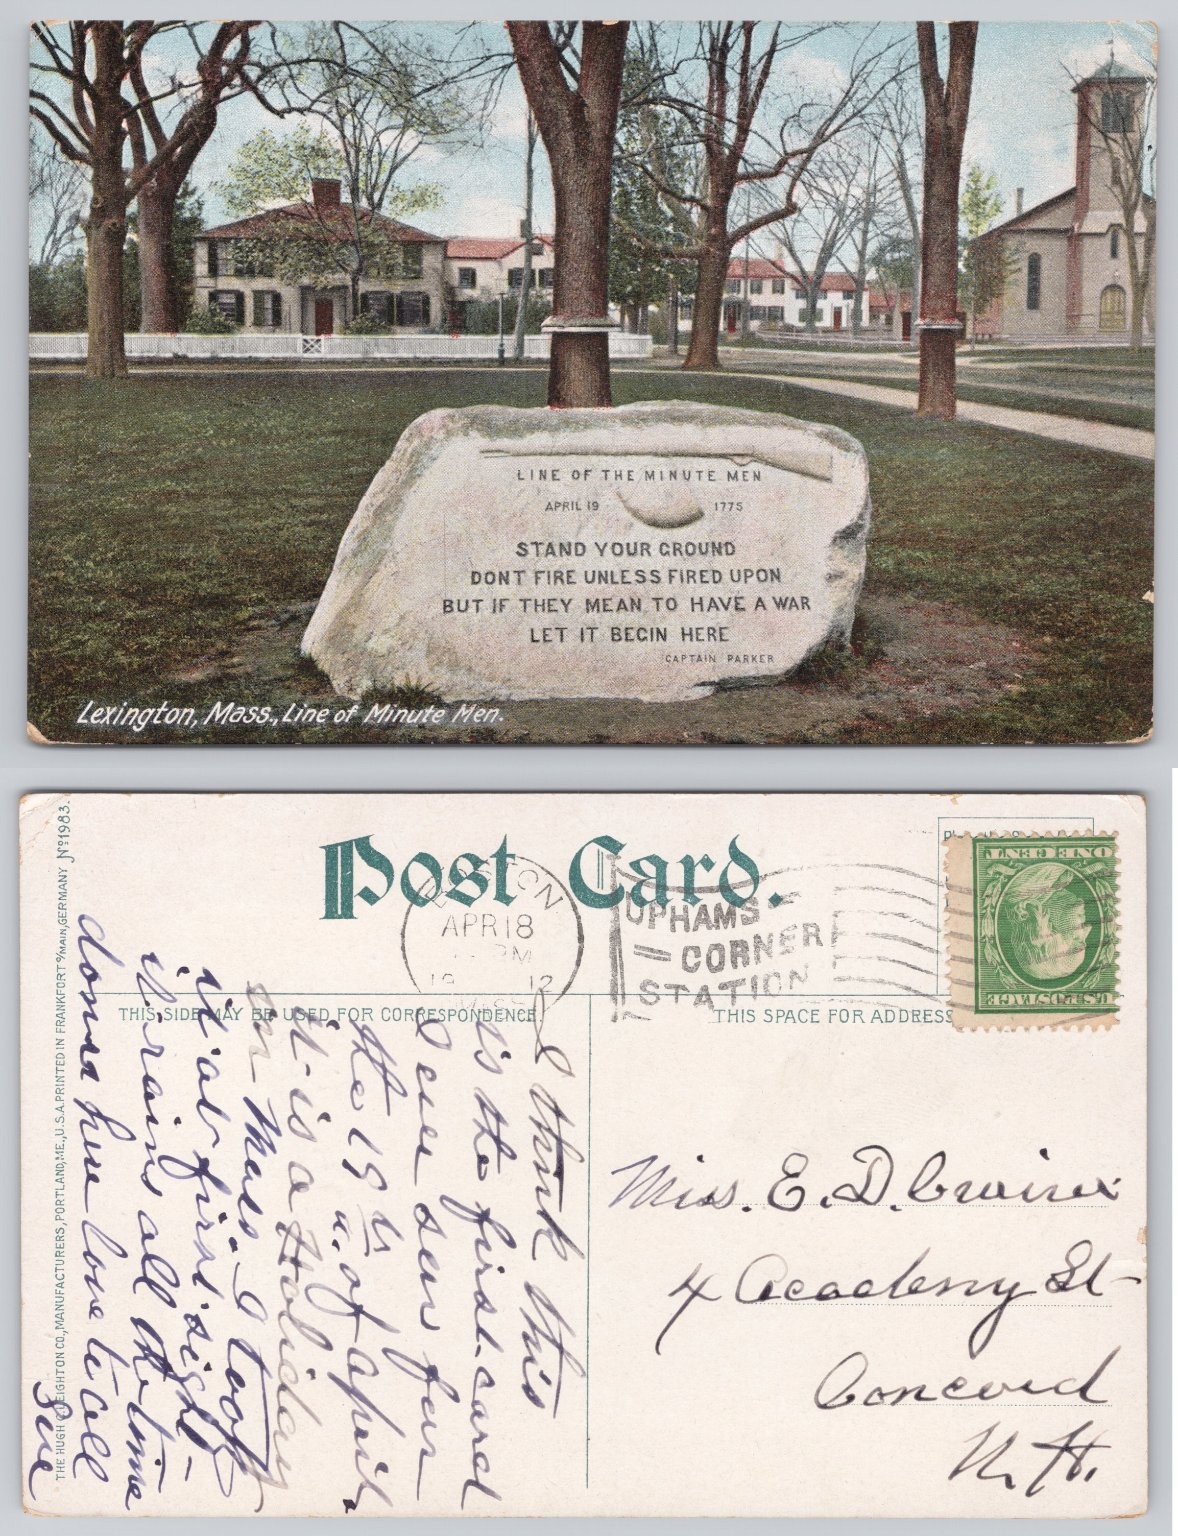 LINE OF THE MINUTE MEN
APRIL 19 1775
STAND YOUR GROUND
DONT FIRE UNLESS FIRED UPON
BUT IF THEY MEAN TO HAVE A WAR
LET IT BEGIN HERE
CAPTAIN PARKER
Lexington, Mass., Line of Minute Men.
THE HUGH C. LEIGHTON CO., MANUFACTURERS, PORTLAND, ME., U.S.A. PRINTED IN FRANKFORT o/MAIN, GERMANY No 1983.
Post Card.
APR 18
PM
19 12
MASS
UPHAMS
CORNER
STATION
ONE CENT
U.S. POSTAGE
THIS SIDE MAY BE USED FOR CORRESPONDENCE.
THIS SPACE FOR ADDRESS
I think this
is the first card
I ever seen for
the 19th of April
it is a Holiday
in Mass. I took
it at first sight
it rains all the time
down here love to all
Miss. E. D.
4 Academy St
Concord
N. H.